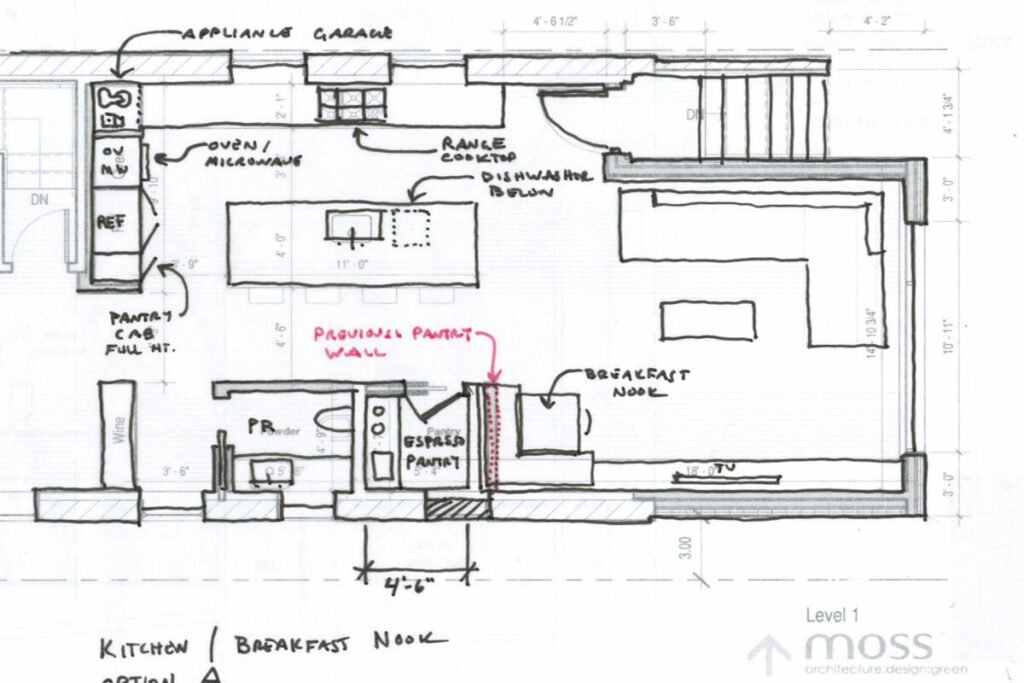 4' - 6 1/2"
3' - 6"
4' - 2"
APPLIANCE GARAGE
2' - 1"
DN
4' - 1 3/4"
OV
MW
OVEN /
MICROWAVE
RANGE
COOKTOP
DISHWASHOR
BELOW
3' - 0"
DN
REF
4' - 0"
11' - 0"
PANTRY
CAB
FULL HT.
4' - 6"
PREVIOUS PANTRY
WALL
14' - 10 3/4"
10' - 11"
BREAKFAST
NOOK
Wine
PR
Powder
4' - 9"
Pantry
ESPRSSO
PANTRY
3' - 6"
5' - 4"
18' - 0"
TV
3' - 0"
4'-6"
3.00
KITCHEN / BREAKFAST NOOK
OPTION A
Level 1
moss
architecture:design:green